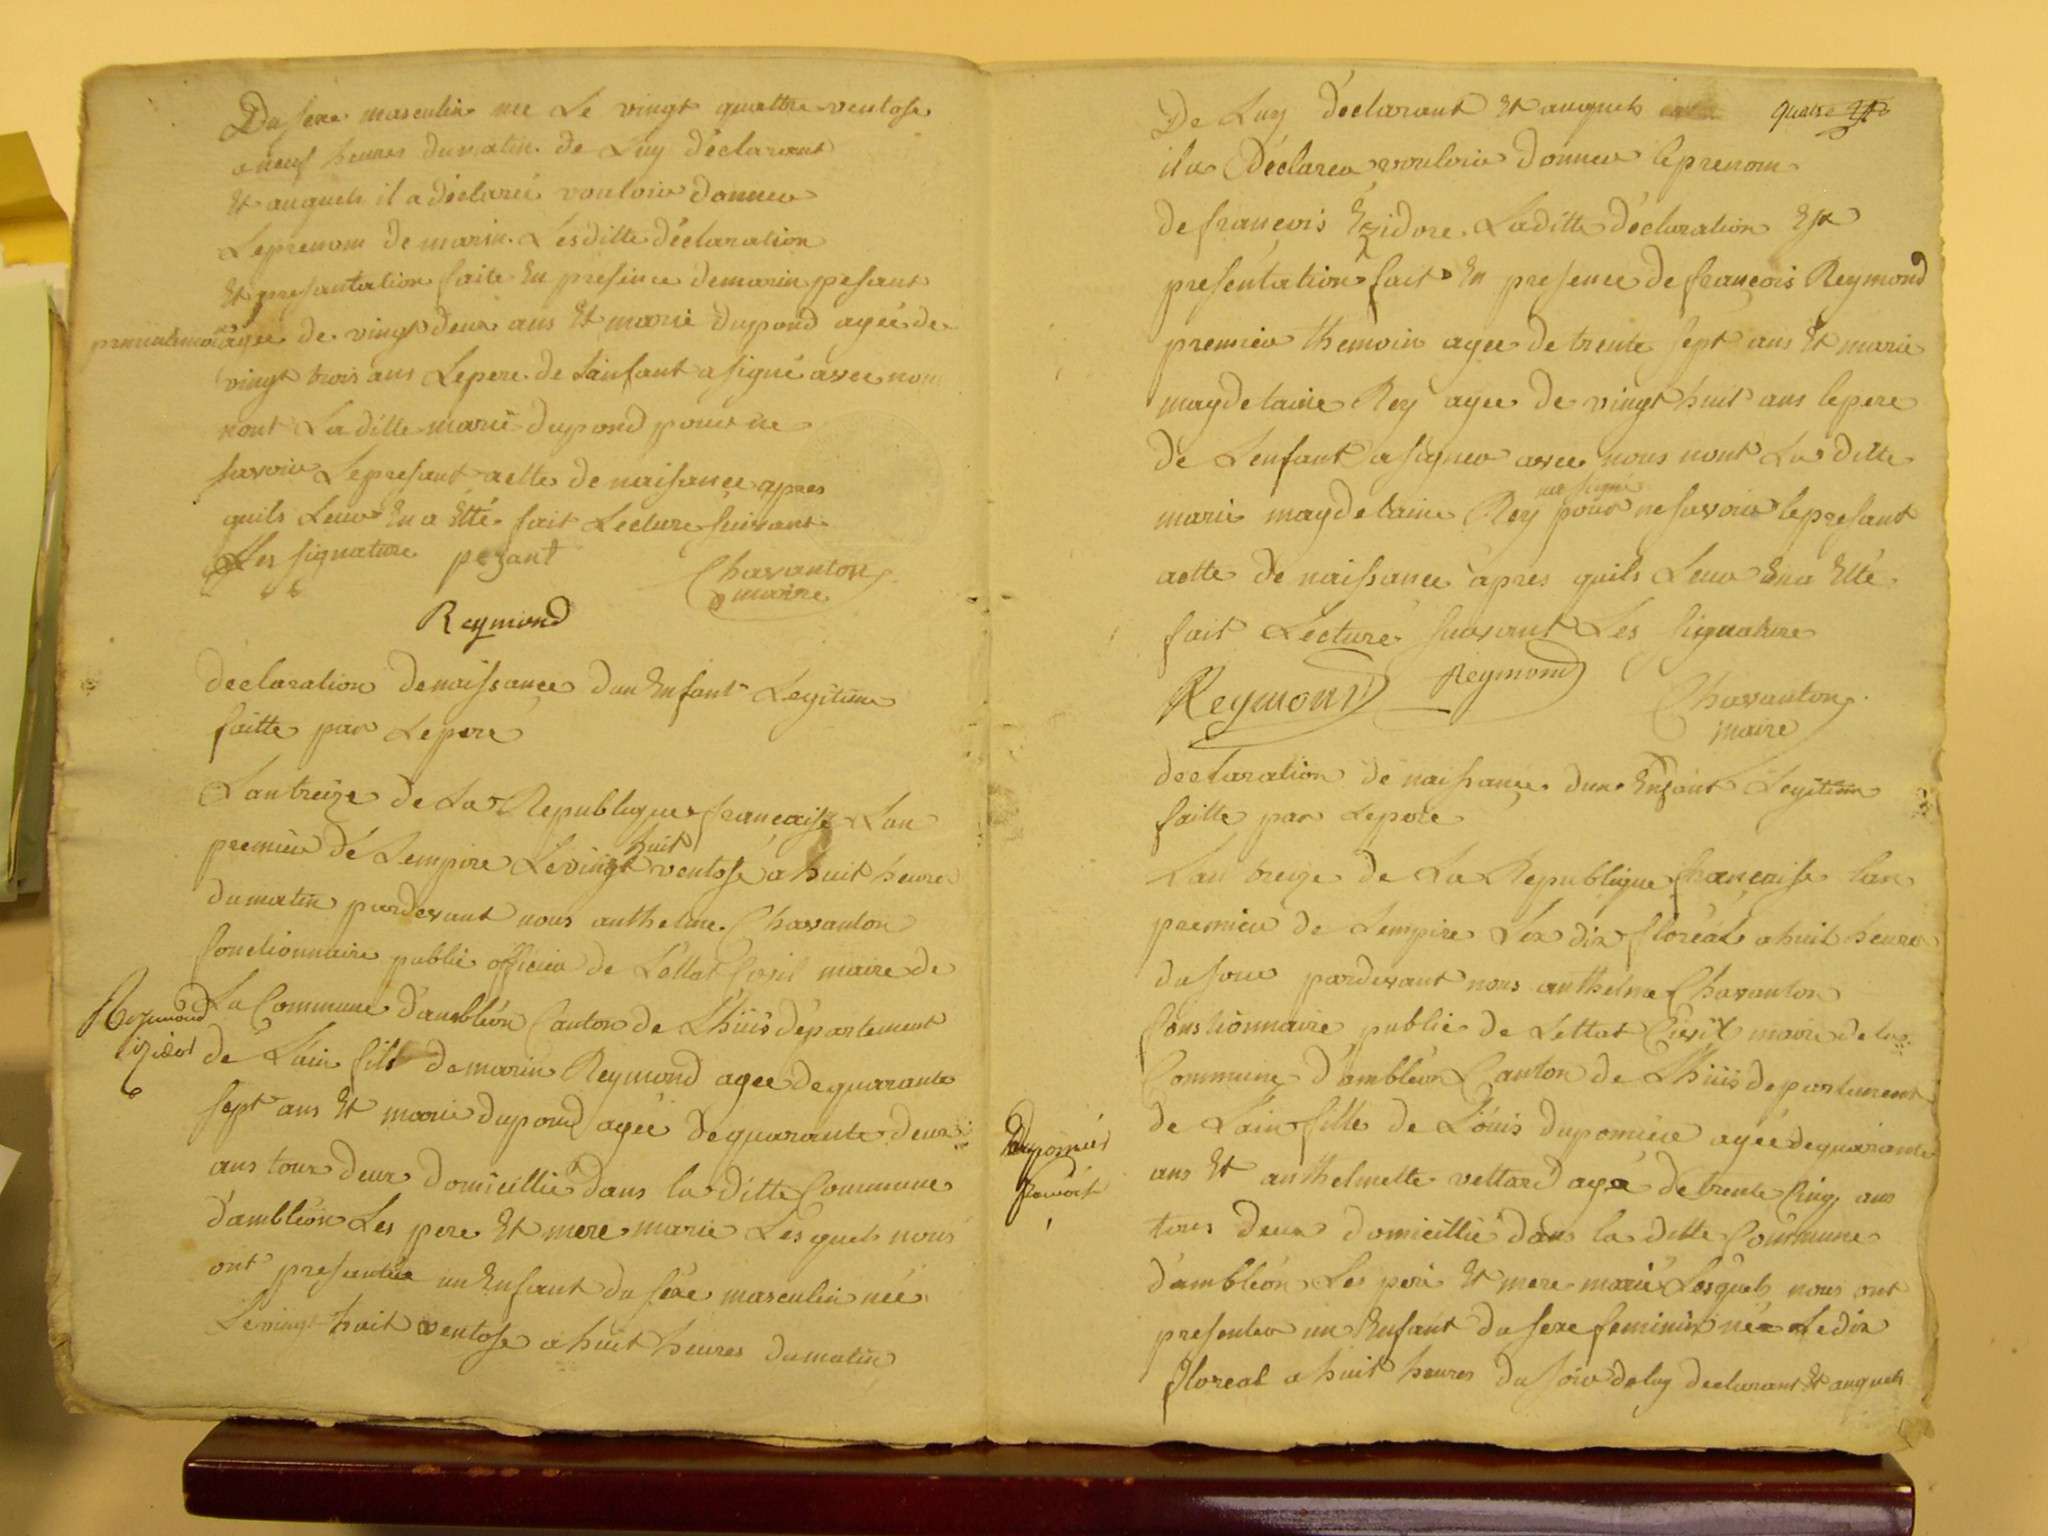 Du sexe masculin nee Le vingt quattre ventose
a neuf heures du matin de Luy déclarant
Et auquels il a déclaréé vouloir donner
Leprenom de marin. Lesditte déclaration
Et presantation faite En presence demarin pesant
agee de vingt deux ans Et marie dupond agéé de
vingt trois ans Lepere de Lainfant a signé avec nous
nont La ditte marie dupond pour ne
savoir Lepresant actte de naisance apres
quils Leur En a Etté fait Lecture suivant
Les signature pezant
Chavanton
maire
Reymond
declaration denaissance dun Enfant Legitime
faitte par Lepere
Lan treize de La Republique francaise Lan
huit
premier de Lempire Levingt ventose a huit heures
dumatin pardevant nous anthelme Chavanton
fonctionnaire public officier de Lettat Civil maire de
La Commune d'ambléon Canton de L'huis département
Reymond
izidor
de Lain fils demarin Reymond agee dequarante
sept ans Et marie dupond agéé de quarante deux
ans tour deux domicillié dans la ditte Commune
d'ambléon Les pere Et mere marie Lesquels nous
ont presantée un Enfant du séxe masculin néé
Levingt huit ventose a huit heures dumatin
quatre
De Luy déclarant Et auquels
il a Déclarer vouloir donner leprenom
de françois Ezidore Laditte déclaration Et
preséntation fait En presence de françois Reymond
premier themoin agee de trente sept ans Et marie
magdelaine Rey agee de vingt huit ans lepere
de Lenfant a signer avec nous nont La ditte
marie magdelaine Rey pour ne savoir le presant
actte de naissance apres quils Leur En a Etté
fait Lecture suivant Les signature
Reymond Reymond
Chavanton
maire
declaration de naissance dun Enfant Legitime
faitte par Lepere
Lan treize de La Republique française lan
premier de Lempire Le dix floréal a huit heures
du soir pardevant nous anthélme Chavanton
fonctionnaire public de Lettat Civil maire dela
Commune d'ambléon Canton de L'huis departement
de Lain fille de Louis dupomier agéé dequarante
ans Et anthelmette vettard agéé de trente Cinq ans
tous deux domicillié dans la ditte Commune
d'ambléon Les peré Et mere marié Lesquels nous ont
presenter un Enfant du sexe feminin néé Ledix
floreal a huit heures du soir de luy declarant Et auquels